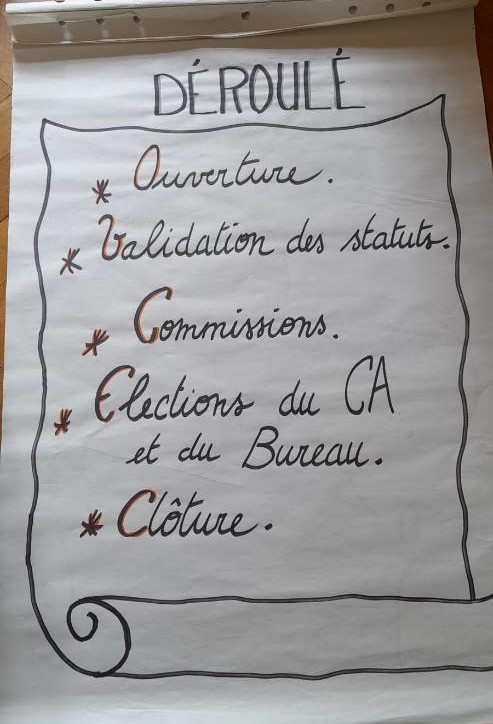 DÉROULÉ
* Ouverture.
* Validation des statuts.
* Commissions.
* Elections du CA
et du Bureau.
* Clôture.